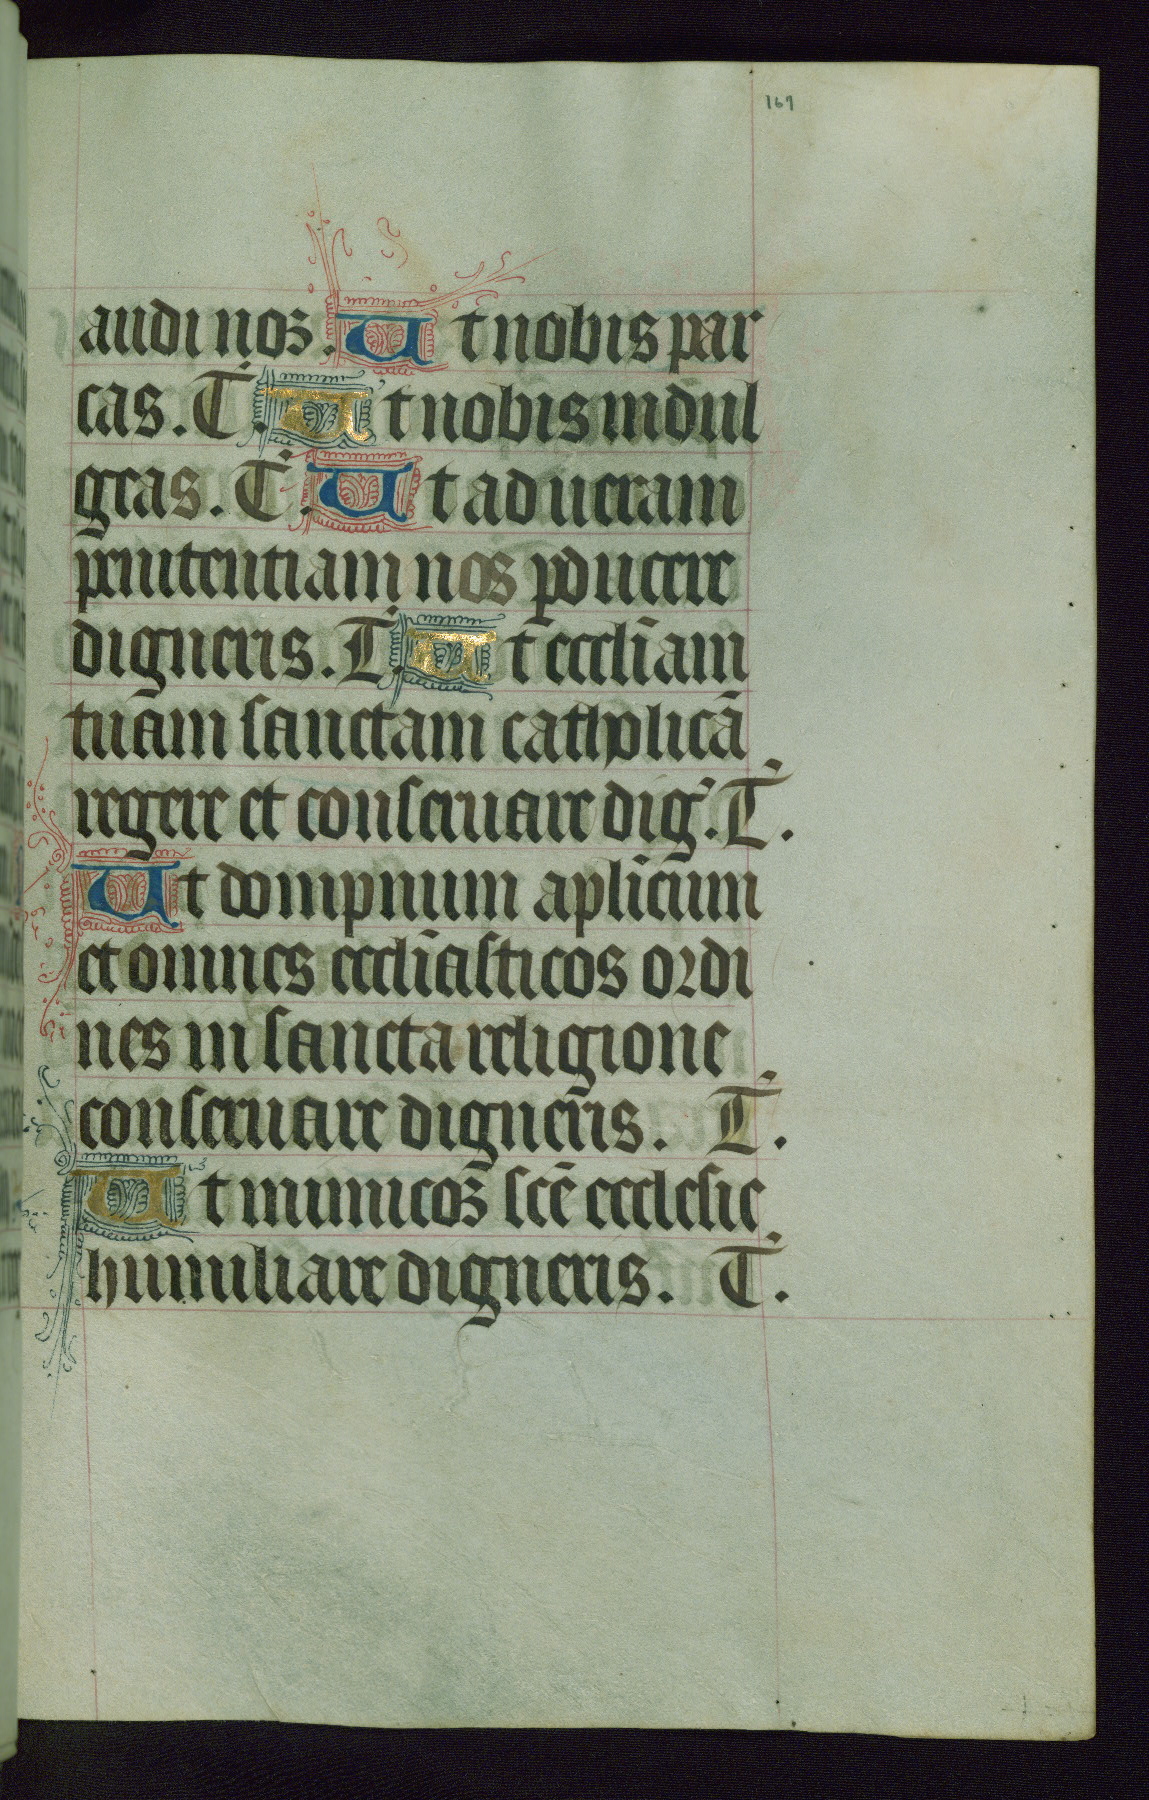 167
audi nos. Ut nobis par
cas. T̄. Ut nobis indul
geas. T̄. Ut ad ueram
penitentiam nos ꝑducere
digneris. T̄. Ut eccliam
tuam sanctam catholicā
regere et conseruare dig̃. T̄.
Ut dompnum aplicum
et omnes eccliasticos ordi
nes in sancta religione
conseruare digneris. T̄.
Ut inimicos scē ecclesie
humiliare digneris. T̄.